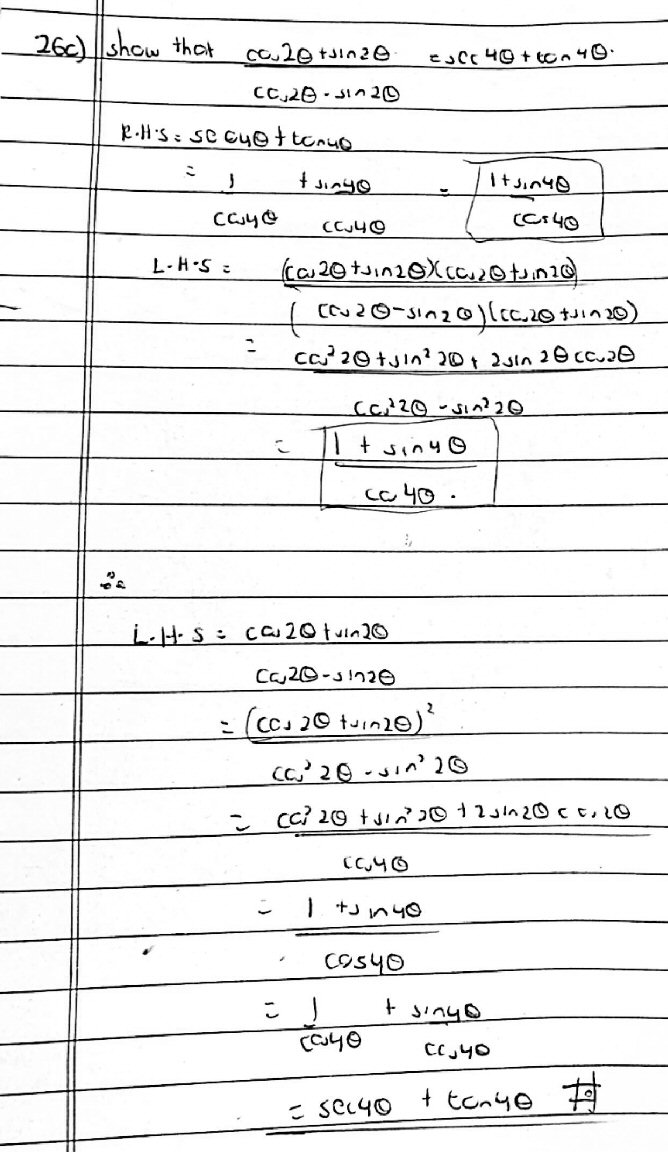 26c) show that cos2θ+sin2θ = sec4θ+tan4θ.
cos2θ-sin2θ
R.H.S = sec4θ+tan4θ
= 1 + sin4θ = 1+sin4θ
cos4θ cos4θ cos4θ
L.H.S = (cos2θ+sin2θ)(cos2θ+sin2θ)
(cos2θ-sin2θ)(cos2θ+sin2θ)
= cos²2θ+sin²2θ+2sin2θcos2θ
cos²2θ-sin²2θ
= 1 + sin4θ
cos4θ.
∴
L.H.S = cos2θ+sin2θ
cos2θ-sin2θ
= (cos2θ+sin2θ)²
cos²2θ-sin²2θ
= cos²2θ+sin²2θ+2sin2θcos2θ
cos4θ
= 1+sin4θ
cos4θ
= 1 + sin4θ
cos4θ cos4θ
= sec4θ + tan4θ #